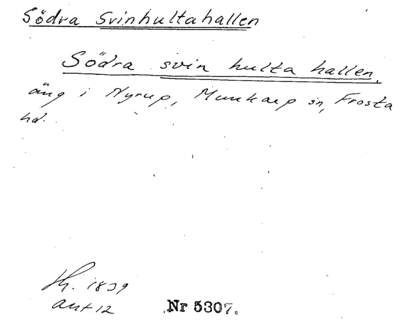 Södra Svinhultahallen
Södra svin hulta hallen,
äng i Nyrup, Munkarp sn, Frosta
hd.
Th. 1839
akt 12
Nr 5307.